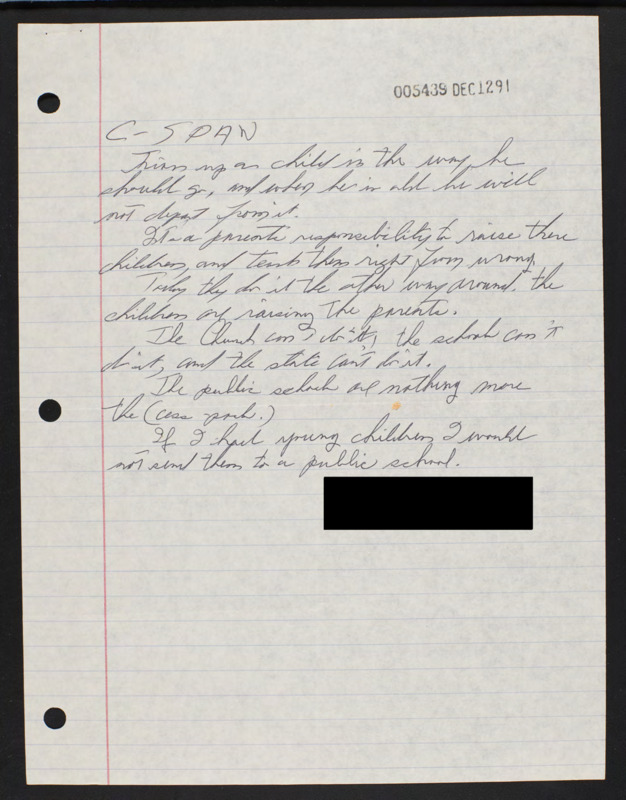 005439 DEC1291
C-SPAN
Train up a child in the way he
should go, and when he is old he will
not depart from it.
It's a parents responsibility to raise there
children, and teach them right from wrong.
Today they do it the other way around, the
children are raising the parents.
The Church can't do it, the schools can't
do it, and the state can't do it.
The public schools are nothing more
the (cess-pools.)
If I had young children I would
not send them to a public school.